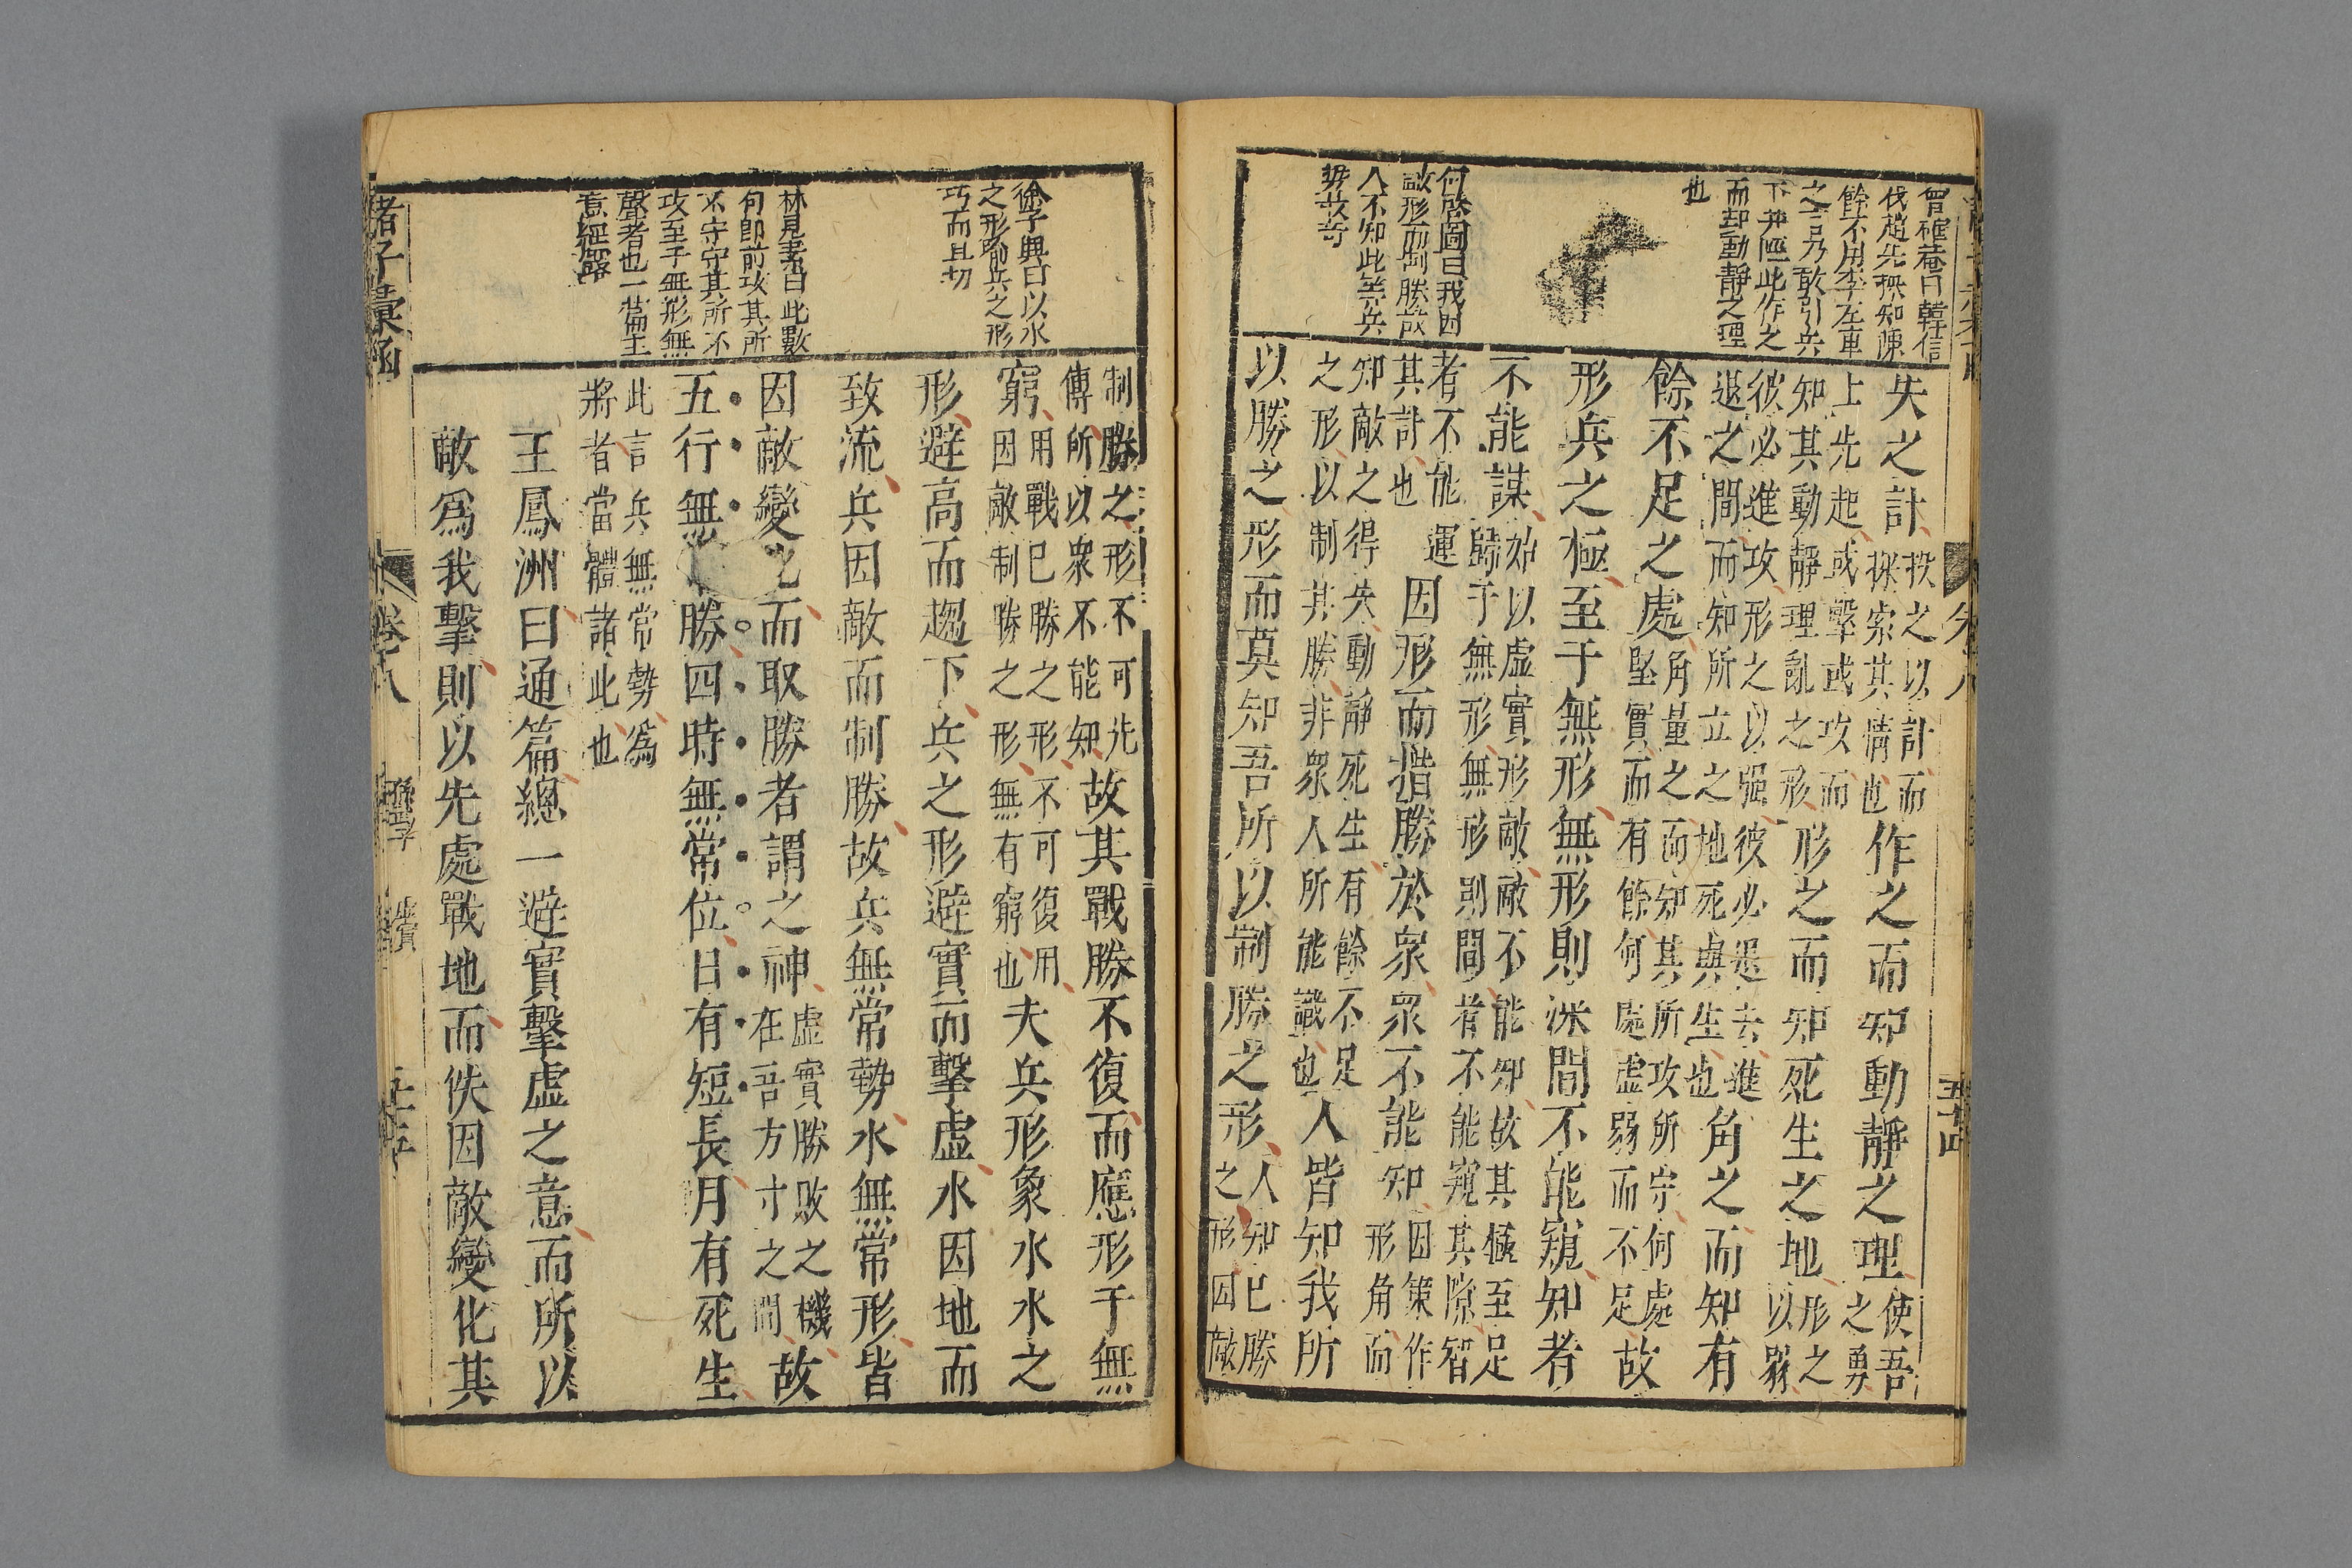 曾確菴曰韓信
伐趙先探知陳
餘不用李左車
之言乃敢引兵
下井陘此作之
而却動靜之理
也
何啓圖曰我因
敵形而制勝故
人不知此善兵
勢故奇
失之計投之以計而探索其情也作之而知動靜之理使吾之勇
上先起或擊或攻而知其動靜理亂之形形之而知死生之地形之以弱
彼必進攻形之以强彼必退去進退之間而知所立之地死與生也角之而知有
餘不足之處角量之而知其所攻所守何處堅實而有餘何處虛弱而不足故
形兵之極至于無形無形則深間不能窺知者
不能謀始以虛實形敵敵不能知故其極至足歸于無形無形則間者不能窺其隙智
者不能運其計也因形而措勝於衆衆不能知因策作形角而
知敵之得失動靜死生有餘不足之形以制其勝非衆人所能識也人皆知我所
以勝之形而莫知吾所以制勝之形人知已勝之形因敵
徐子與曰以水
之形喻兵之形
巧而且切
林見素曰此數
句卽前攻其所
不守守其所不
攻至于無形無
聲者也一篇主
意極露
制勝之形不可先傳所以衆不能知故其戰勝不復而應形于無
窮用戰已勝之形不可復用因敵制勝之形無有窮也夫兵形象水水之
形避高而趨下兵之形避實而擊虛水因地而
致流兵因敵而制勝故兵無常勢水無常形皆
因敵變化而取勝者謂之神虛實勝敗之機在吾方寸之間故
五行無勝四時無常位日有短長月有死生
此言兵無常勢爲將者當體諸此也
王鳳洲曰通篇總一避實擊虛之意而所以
敵爲我擊則以先處戰地而佚因敵變化其
諸子彙函
卷十八